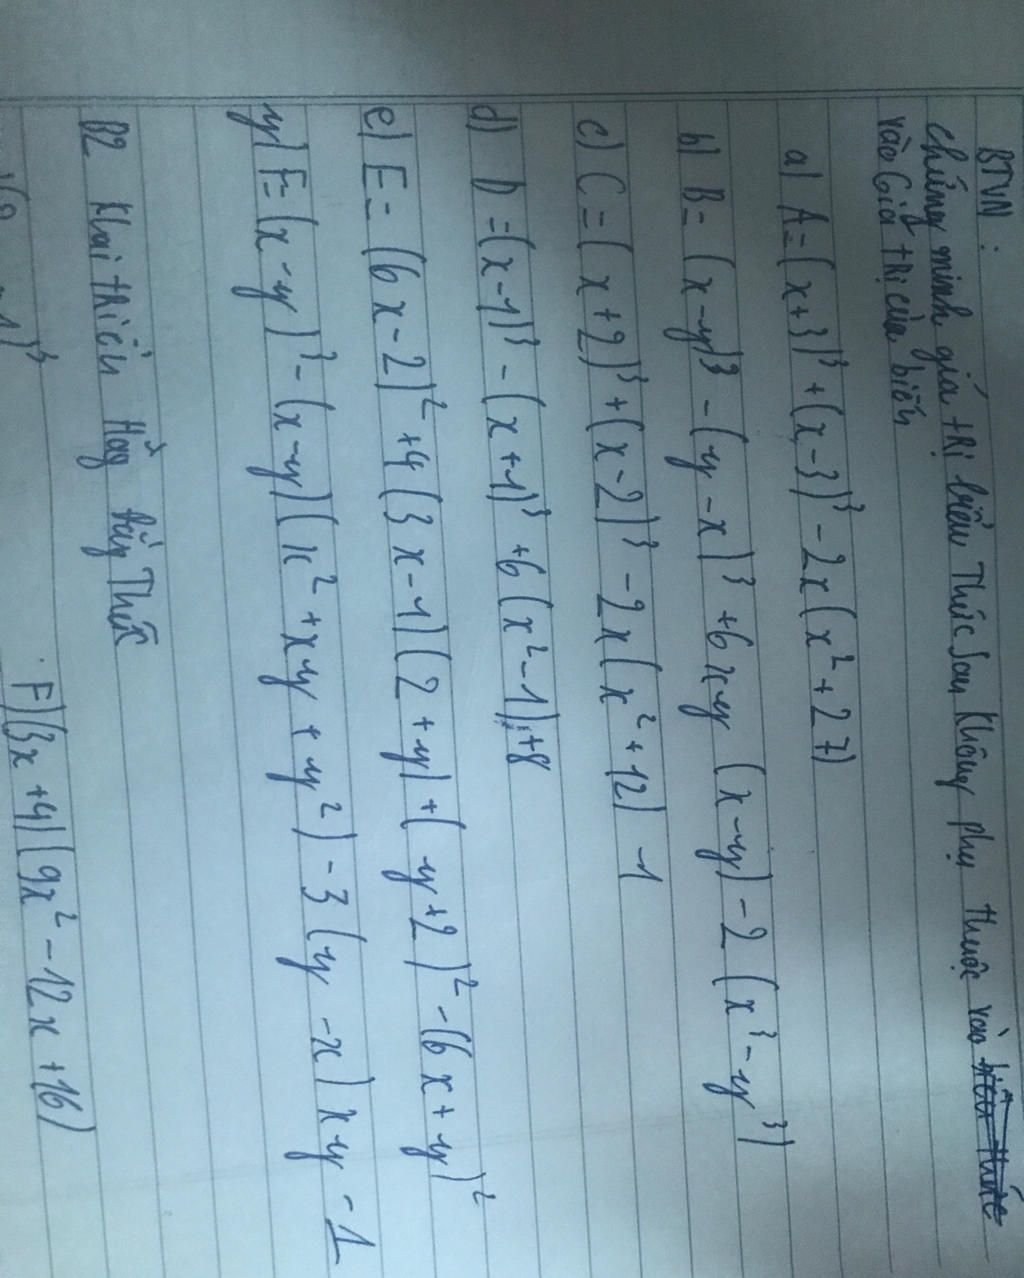 BTVN :
Chứng minh giá trị biểu thức sau không phụ thuộc vào biểu thức
vào Giá trị của biến
a) A = (x+3)³ + (x-3)³ - 2x(x² + 27)
b) B = (x-y)³ - (y-x)³ + 6xy (x-y) - 2 (x³ - y³)
c) C = (x+2)³ + (x-2)³ - 2x(x² + 12) - 1
d) D = (x-1)³ - (x+1)³ + 6(x² - 1) + 8
e) E = (6x-2)² + 4(3x-1)(2+y) + (y+2)² - (6x+y)²
y) F = (x-y)³ - (x-y)(x² + xy + y²) - 3(y-x)xy - 1
B2 Khai triển Hằng đẳng Thức
F) (3x+4)(9x² - 12x + 16)